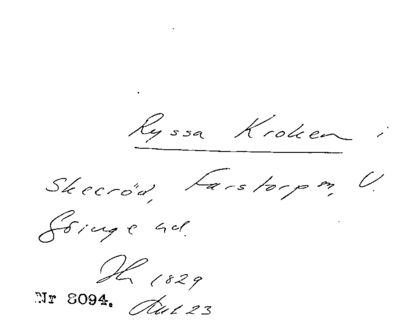 Ryssa Kroken i
Skeeröd, Farstorp sn, V.
Göinge hd.
1829
Nr 8094.